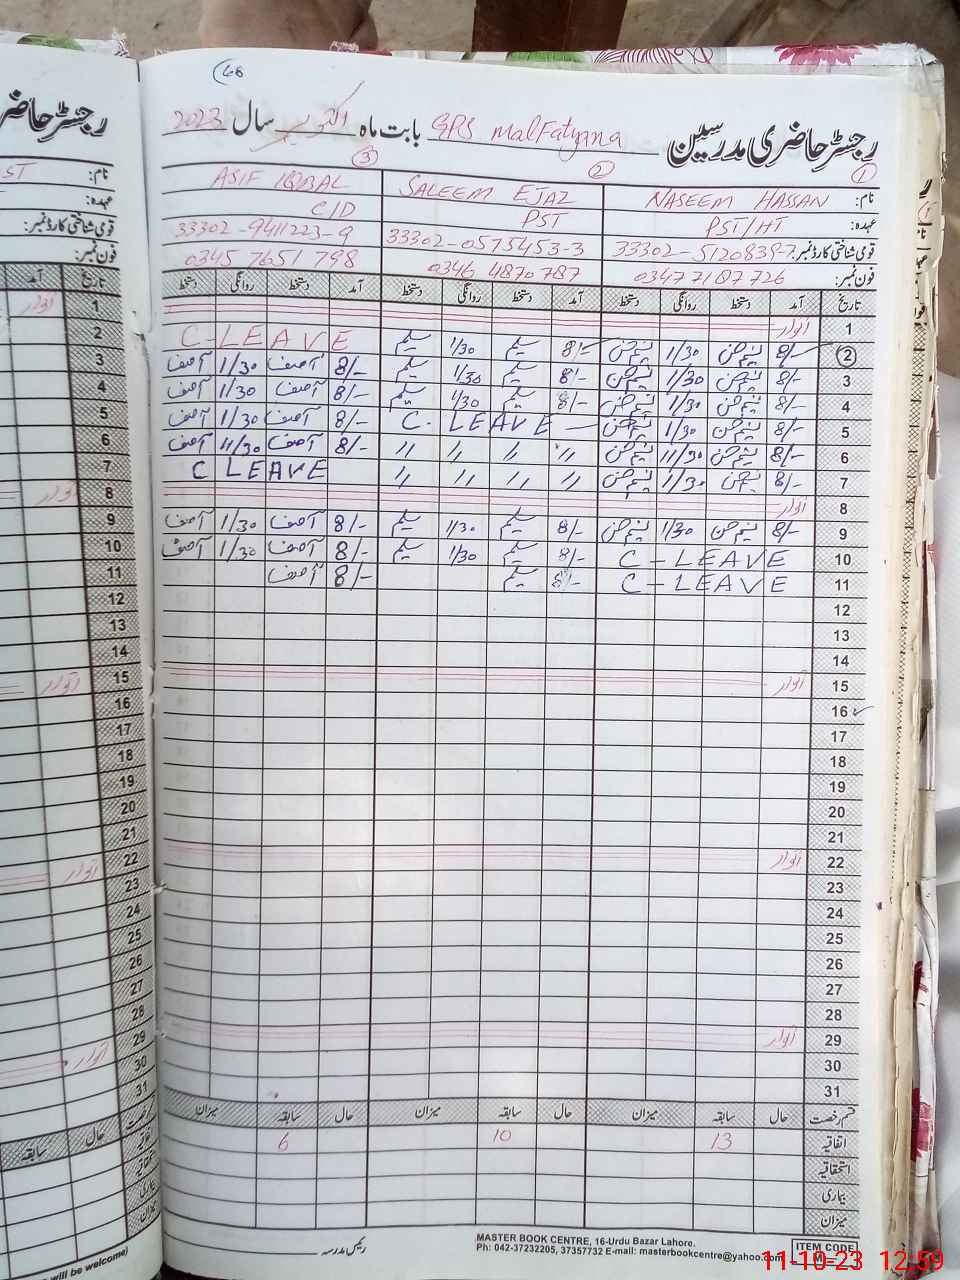 68
رجسٹر حاضری مدرسین GPS MalFatyana بابت ماہ اکتوبر سال 2023
① ② ③
نام: NASEEM HASSAN SALEEM EJAZ ASIF IQBAL
عہدہ: PST/HT PST C/D
قومی شناختی کارڈ نمبر: 33302-5120839-7 33302-0575453-3 33302-9411223-9
فون نمبر: 03477187726 0346 4870787 0345 7651 798
تاریخ آمد دستخط روانگی دستخط آمد دستخط روانگی دستخط آمد دستخط روانگی دستخط
1 اتوار
2 8/- نسیم حسن 1/30 نسیم حسن 8/- سلیم 1/30 سلیم C-LEAVE
3 8/- نسیم حسن 1/30 نسیم حسن 8/- سلیم 1/30 سلیم 8/- آصف 1/30 آصف
4 8/- نسیم حسن 1/30 نسیم حسن 8/- سلیم 1/30 سلیم 8/- آصف 1/30 آصف
5 8/- نسیم حسن 1/30 نسیم حسن C. LEAVE 8/- آصف 1/30 آصف
6 8/- نسیم حسن 11/30 نسیم حسن 〃 〃 〃 〃 8/- آصف 11/30 آصف
7 8/- نسیم حسن 1/30 نسیم حسن 〃 〃 〃 〃 C LEAVE
8 اتوار
9 8/- نسیم حسن 1/30 نسیم حسن 8/- سلیم 1/30 سلیم 8/- آصف 1/30 آصف
10 C-LEAVE 8/- سلیم 1/30 سلیم 8/- آصف 1/30 آصف
11 C-LEAVE 8/- سلیم 8/- آصف
12
13
14
15 اتوار
16
17
18
19
20
21
22 اتوار
23
24
25
26
27
28
29 اتوار
30
31
قسم رخصت حال سابقہ میزان حال سابقہ میزان حال سابقہ میزان
اتفاقیہ 13 10 6
استحقاقیہ
بیماری
میزان
رئیس مدرسہ
MASTER BOOK CENTRE, 16-Urdu Bazar Lahore.
Ph: 042-37232205, 37357732 E-mail: masterbookcentre@yahoo.com
ITEM CODE
11-10-23 12:59
رجسٹر حاضری
نام: ST
عہدہ:
قومی شناختی کارڈ نمبر:
فون نمبر:
تاریخ آمد
1 اتوار
2
3
4
5
6
7
8 اتوار
9
10
11
12
13
14
15 اتوار
16
17
18
19
20
21
22 اتوار
23
24
25
26
27
28
29
30 اتوار
31
قسم رخصت حال سابقہ
اتفاقیہ
استحقاقیہ
بیماری
میزان
will be welcome)